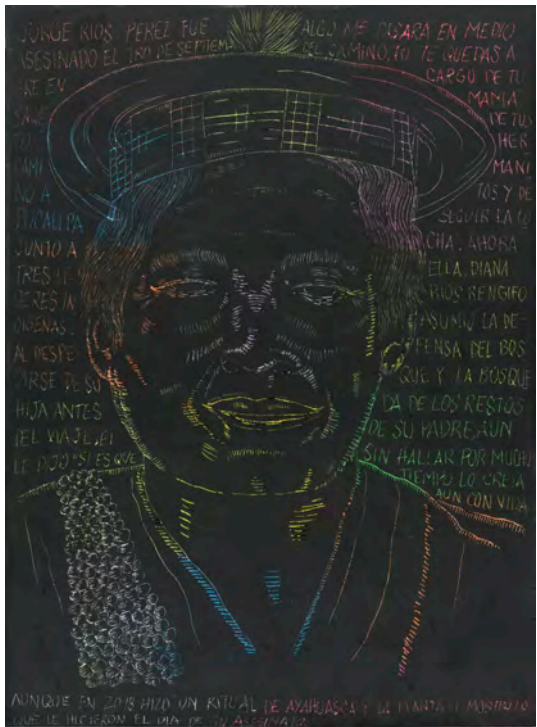 JORGE RIOS PEREZ FUE
ASESINADO EL 1RO DE SEPTIEM
BRE EN
SAWE
TO
CAMI
NO A
PUCALLPA
JUNTO A
TRES LI
DERES IN
DIGENAS.
AL DESPE
DIRSE DE SU
HIJA ANTES
DEL VIAJE, EL
LE DIJO "SI ES QUE
ALGO ME PASARA EN MEDIO
DEL CAMINO, TU TE QUEDAS A
CARGO DE TU
MAMA
DE TUS
HER
MANI
TOS Y DE
SEGUIR LA LU
CHA. AHORA
ELLA, DIANA
RIOS RENGIFO
ASUMIO LA DE-
FENSA DEL BOS
QUE Y LA BUSQUE
DA DE LOS RESTOS
DE SU PADRE AUN
SIN HALLAR POR MUCHO
TIEMPO LO CREIA
AUN CON VIDA
AUNQUE EN 2018 HIZO UN RITUAL DE AYAHUASCA Y LA PLANTA LE MOSTRO LO
QUE LE HICIERON EL DIA DE SU ASESINATO.